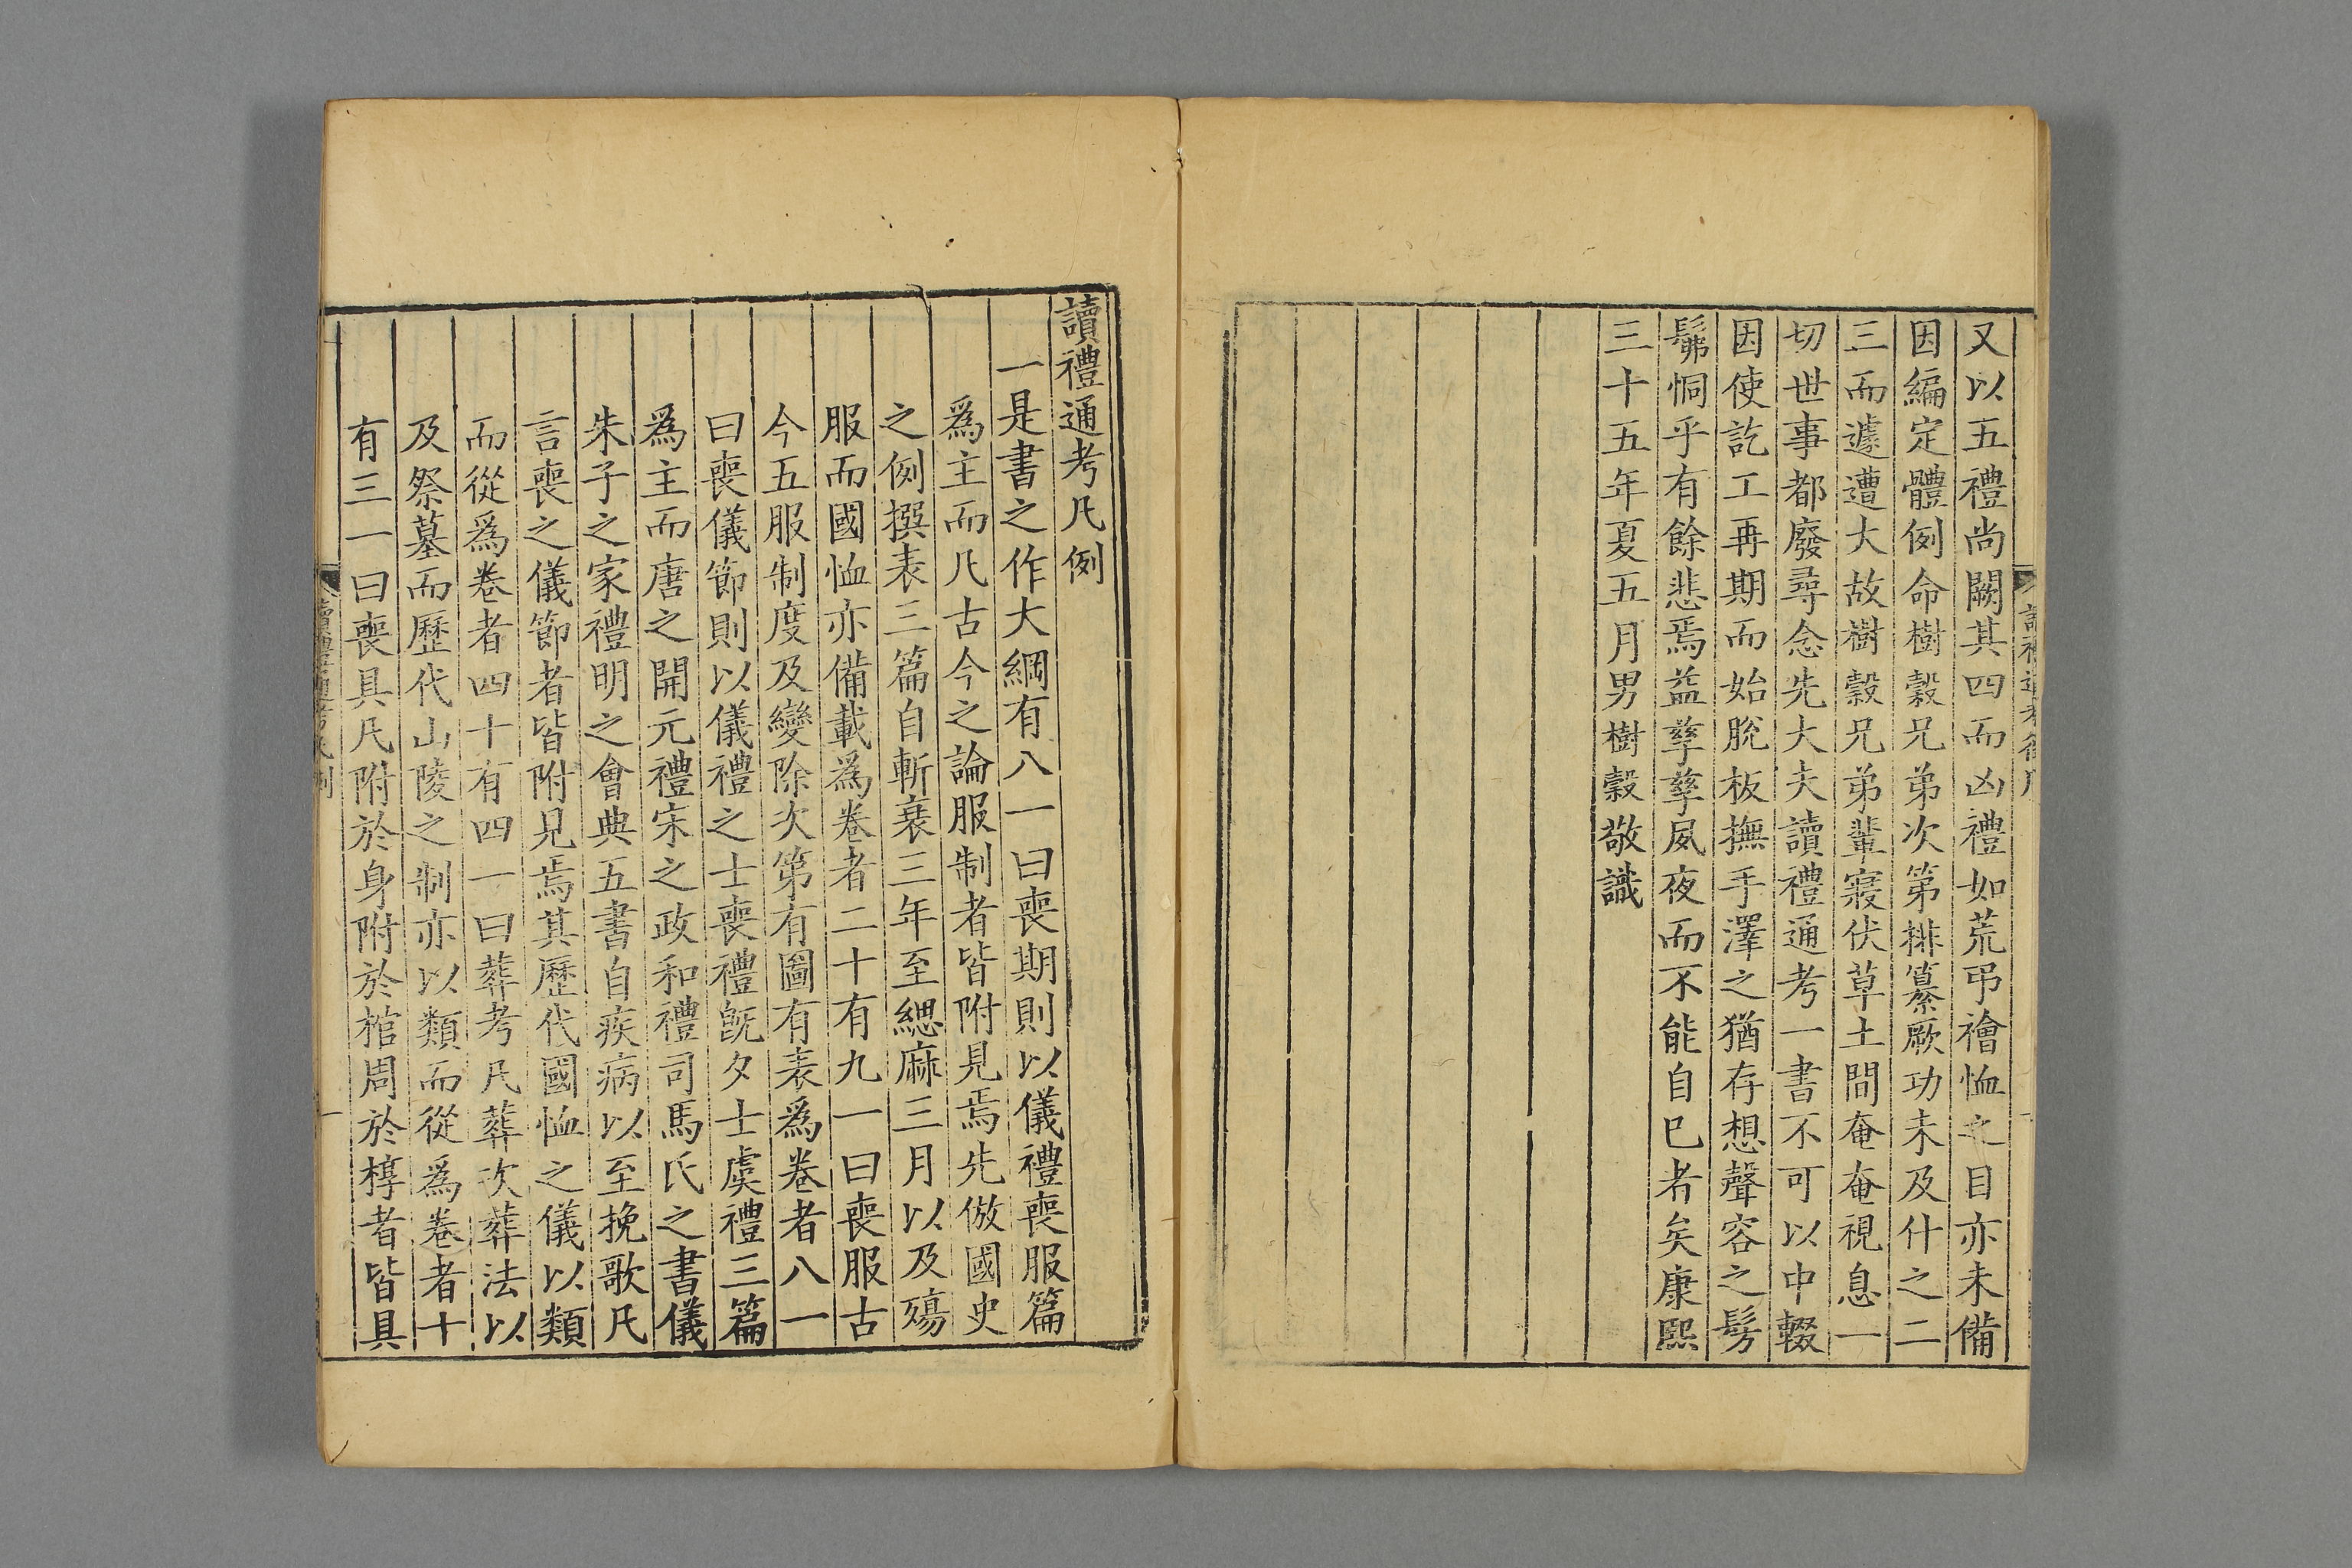 又以五禮尚闕其四而凶禮如荒弔禬恤之目亦未備
因編定體例命樹穀兄弟次第排纂厥功未及什之二
三而遽遭大故樹穀兄弟輩寢伏草土間奄奄視息一
切世事都廢尋念先大夫讀禮通考一書不可以中輟
因使訖工再期而始脫板撫手澤之猶存想聲容之髣
髴恫乎有餘悲焉益孳孳夙夜而不能自已者矣康熙
三十五年夏五月男樹穀敬識
讀禮通考凡例
一是書之作大綱有八一曰喪期則以儀禮喪服篇
爲主而凡古今之論服制者皆附見焉先倣國史
之例撰表三篇自斬衰三年至緦麻三月以及殤
服而國恤亦備載爲卷者二十有九一曰喪服古
今五服制度及變除次第有圖有表爲卷者八一
曰喪儀節則以儀禮之士喪禮旣夕士虞禮三篇
爲主而唐之開元禮宋之政和禮司馬氏之書儀
朱子之家禮明之會典五書自疾病以至挽歌凡
言喪之儀節者皆附見焉其歷代國恤之儀以類
而從爲卷者四十有四一曰葬考凡葬次葬法以
及祭墓而歷代山陵之制亦以類而從爲卷者十
有三一曰喪具凡附於身附於棺周於椁者皆具